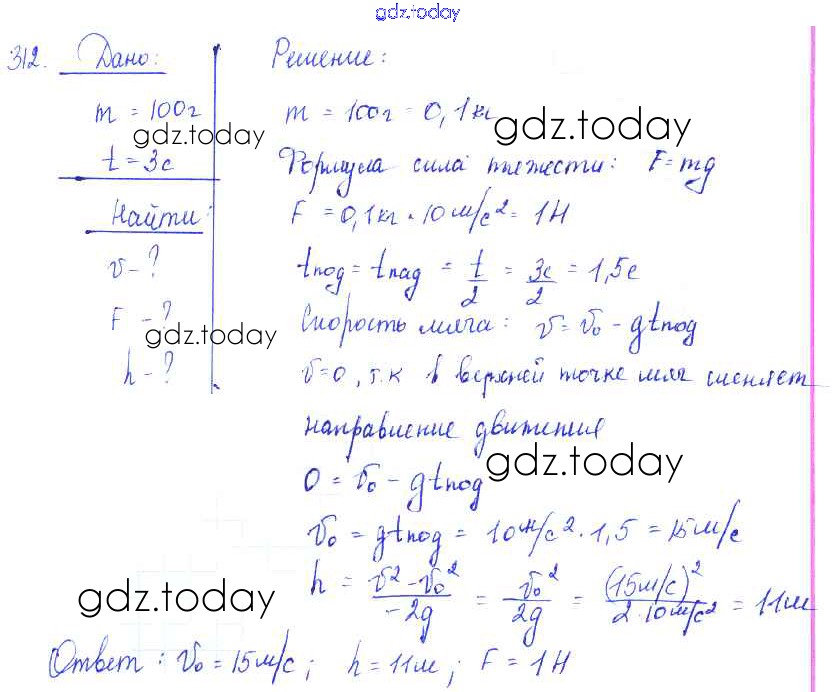 gdz.today
312. Дано:
m = 100г
gdz.today
t = 3с
Найти:
v - ?
F - ?
gdz.today
h - ?
Решение:
m = 100г = 0,1кг
gdz.today
Формула сила тяжести: F = mg
F = 0,1кг · 10м/с² = 1Н
tпод = tпад = t/2 = 3с/2 = 1,5с
Скорость мяча: v = v₀ - gtпод
v=0, т.к в верхней точке мяч меняет
направление движения
gdz.today
0 = v₀ - gtпод
v₀ = gtпод = 10м/с² · 1,5 = 15м/с
h = v² - v₀²/-2g = v₀²/2g = (15м/с)²/2·10м/с² = 11м
gdz.today
Ответ: v₀ = 15м/с; h = 11м; F = 1Н